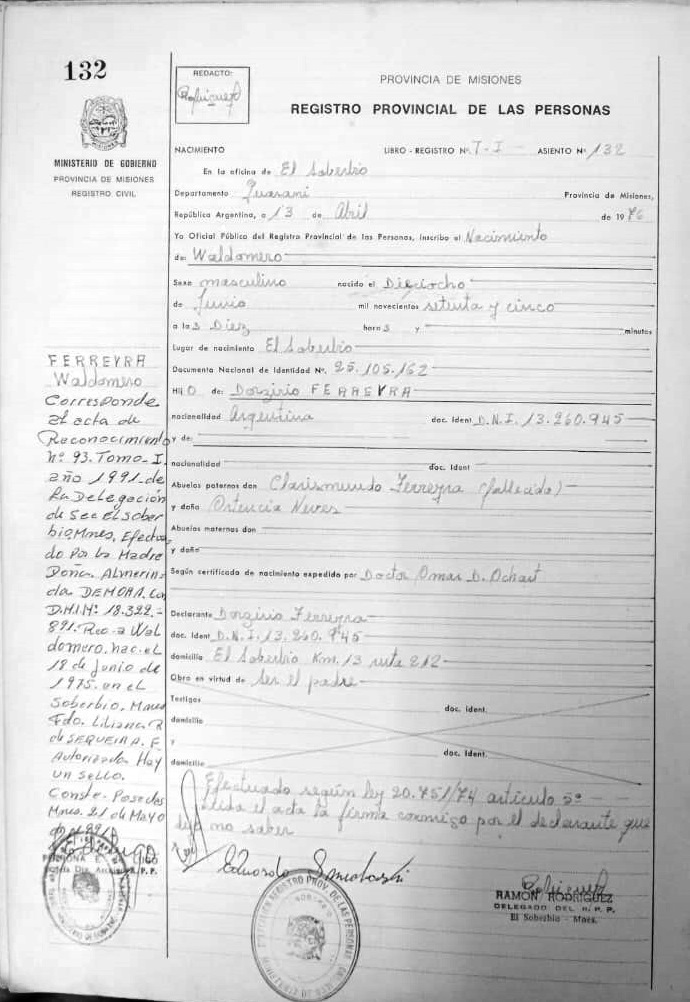 132
REDACTO:
Rodriguez
PROVINCIA DE MISIONES
REGISTRO PROVINCIAL DE LAS PERSONAS
MISIONES
MINISTERIO DE GOBIERNO
PROVINCIA DE MISIONES
REGISTRO CIVIL
NACIMIENTO LIBRO - REGISTRO Nº T-I ASIENTO Nº 132
En la oficina de El Soberbio
Departamento Guaraní Provincia de Misiones,
República Argentina, a 13 de Abril de 1976
Yo Oficial Público del Registro Provincial de las Personas, inscribo el Nacimiento
de: Waldomero
Sexo masculino nacido el Dieciocho
de Junio mil novecientos setenta y cinco
a las Diez horas y minutos
Lugar de nacimiento El Soberbio
Documento Nacional de Identidad Nº. 25.105.162
Hijo de: Dorzirio FERREYRA
nacionalidad Argentina doc. Ident D.N.I. 13.260.945
y de:
nacionalidad doc. Ident
Abuelos paternos don Clarismundo Ferreyra (fallecido)
y doña Ortencia Neves
Abuelos maternos don
y doña
Según certificado de nacimiento expedido por Doctor Omar D. Ochart
Declarante Dorzirio Ferreyra
doc. Ident D.N.I. 13.260.945
domicilio El Soberbio Km. 13 ruta 212
Obra en virtud de ser el padre
Testigos doc. Ident.
domicilio
y doc. Ident.
domicilio
Efectuado según ley 20.751/74 artículo 5º
Leída el acta la firma conmigo por el declarante que
dijo no saber
Eduardo
Rodriguez
RAMON RODRIGUEZ
DELEGADO DEL R. P. P.
El Soberbio - Mnes.
REGISTRO PROV. DE LAS PERSONAS
FERREYRA
Waldomero
Corresponde
al acta de
Reconocimiento
Nº 93. Tomo-I
año 1991-de
la Delegación
de Sec El Sober
bio, Mnes, Efectua
do Por la Madre
Doña. Almerin
da DEMORA. Con
D.N.I Nº 18.322.-
891. Rec. a Wal
domero. nac. el
18 de Junio de
1975. en el
Soberbio. Mnes
Fdo. Liliana R
de SEQUEIRA. F.
Autorizada Hay
un sello.
Conste. Posadas
Mnes. 21 de Mayo
de 1991